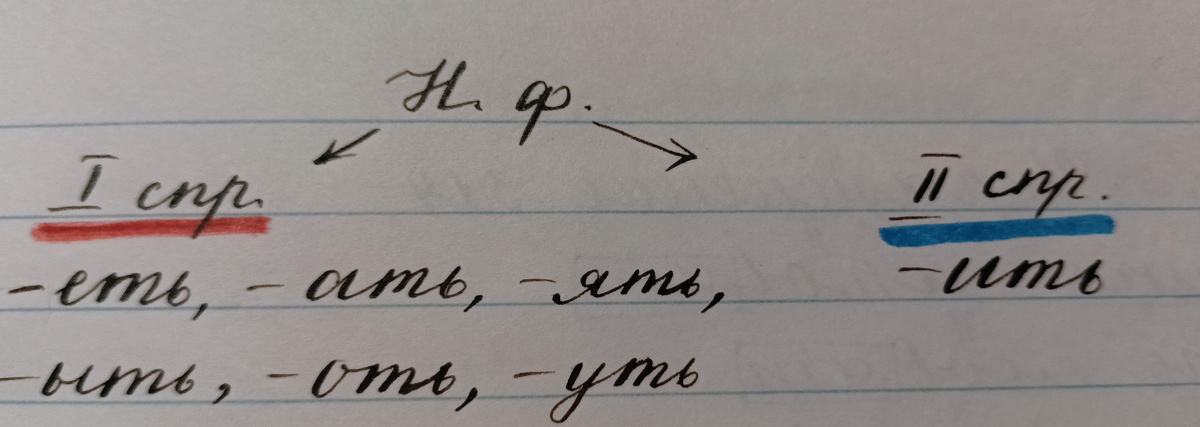 Н. ф.
I спр. II спр.
-еть, -ать, -ять, -ить
-ыть, -оть, -уть